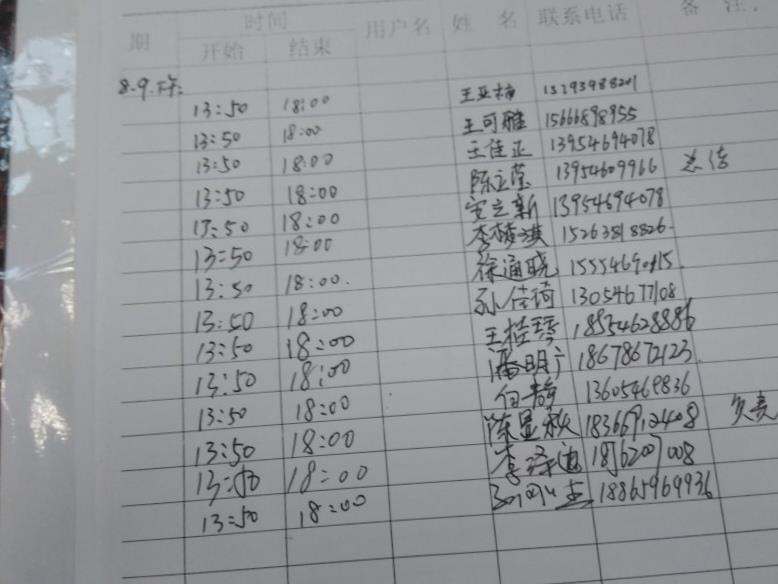 期 时间 用户名 姓 名 联系电话 备 注
开始 结束
8.9.下午:
13:50 18:00 王亚楠 15293988201
13:50 18:00 王可雅 15666898955
13:50 18:00 王佳正 13954694078
13:50 18:00 陈立莹 13954609966 总结
13:50 18:00 安立新 13954694078
13:50 18:00 李梦琪 15263818826
13:50 18:00 徐通晓
13:50 18:00 孙倩琦 13054677108
13:50 18:00 王桂琴 18854628886
13:50 18:00 潘明广 18678672123
13:50 18:00 白静 13605469836
13:50 18:00 陈显秋 18366912408 负责
13:50 18:00 李泽迪 18762007008
13:50 18:00 18865969936